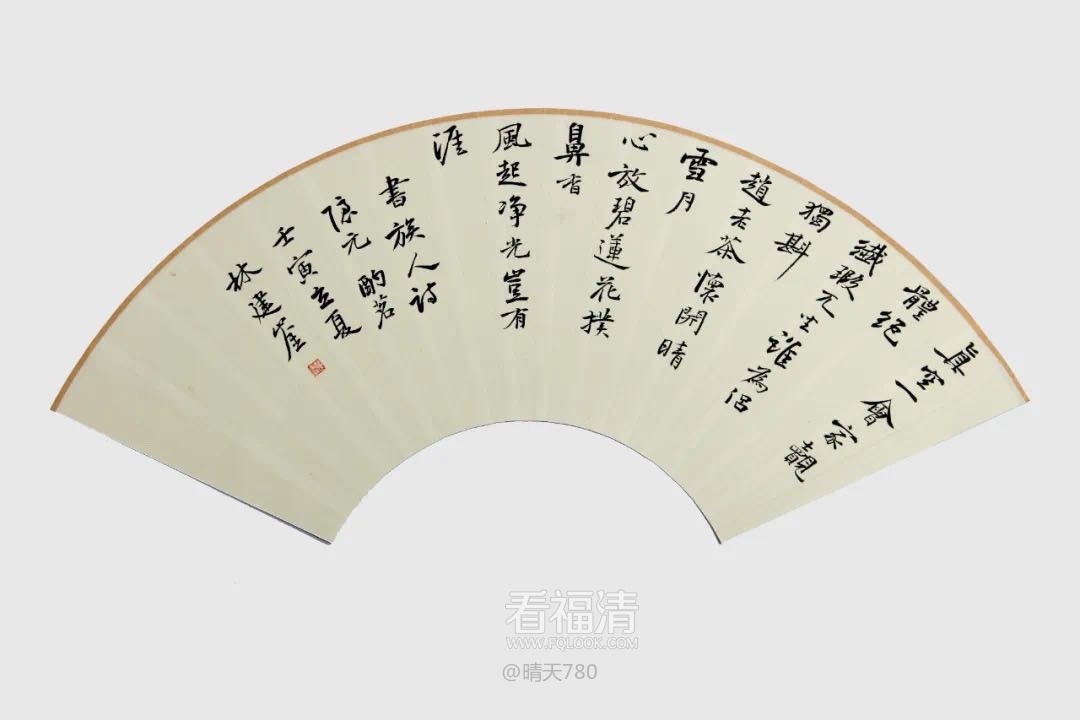 眞空一會家覿
體絕
纖瑕无生誰為侶
獨斟
趙老茶懷開晴
雪月
心放碧蓮花撲
鼻香
風起净光豈有
涯
書族人詩
隱元酌茗
壬寅立夏
林建
看福清
WWW.FQLOOK.COM
@晴天780